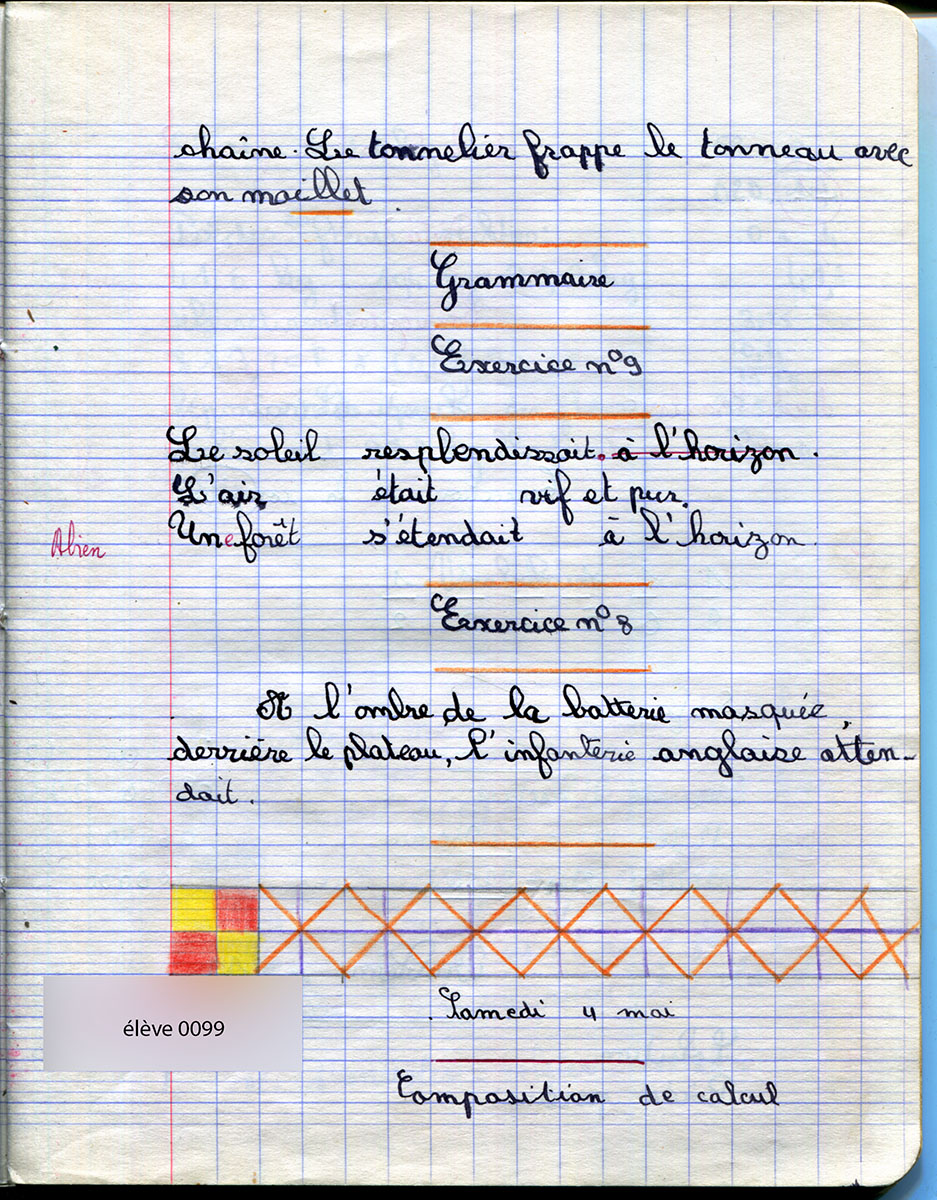 chaîne. Le tonnelier frappe le tonneau avec
son maillet.
Grammaire
Exercice n°9
Le soleil resplendissait. à l'horizon.
L'air était vif et pur.
A bien Une forêt s'étendait à l'horizon.
Exercice n°8
A l'ombre de la batterie masquée,
derrière le plateau, l'infanterie anglaise atten-
dait.
élève 0099
Samedi 4 mai
Composition de calcul